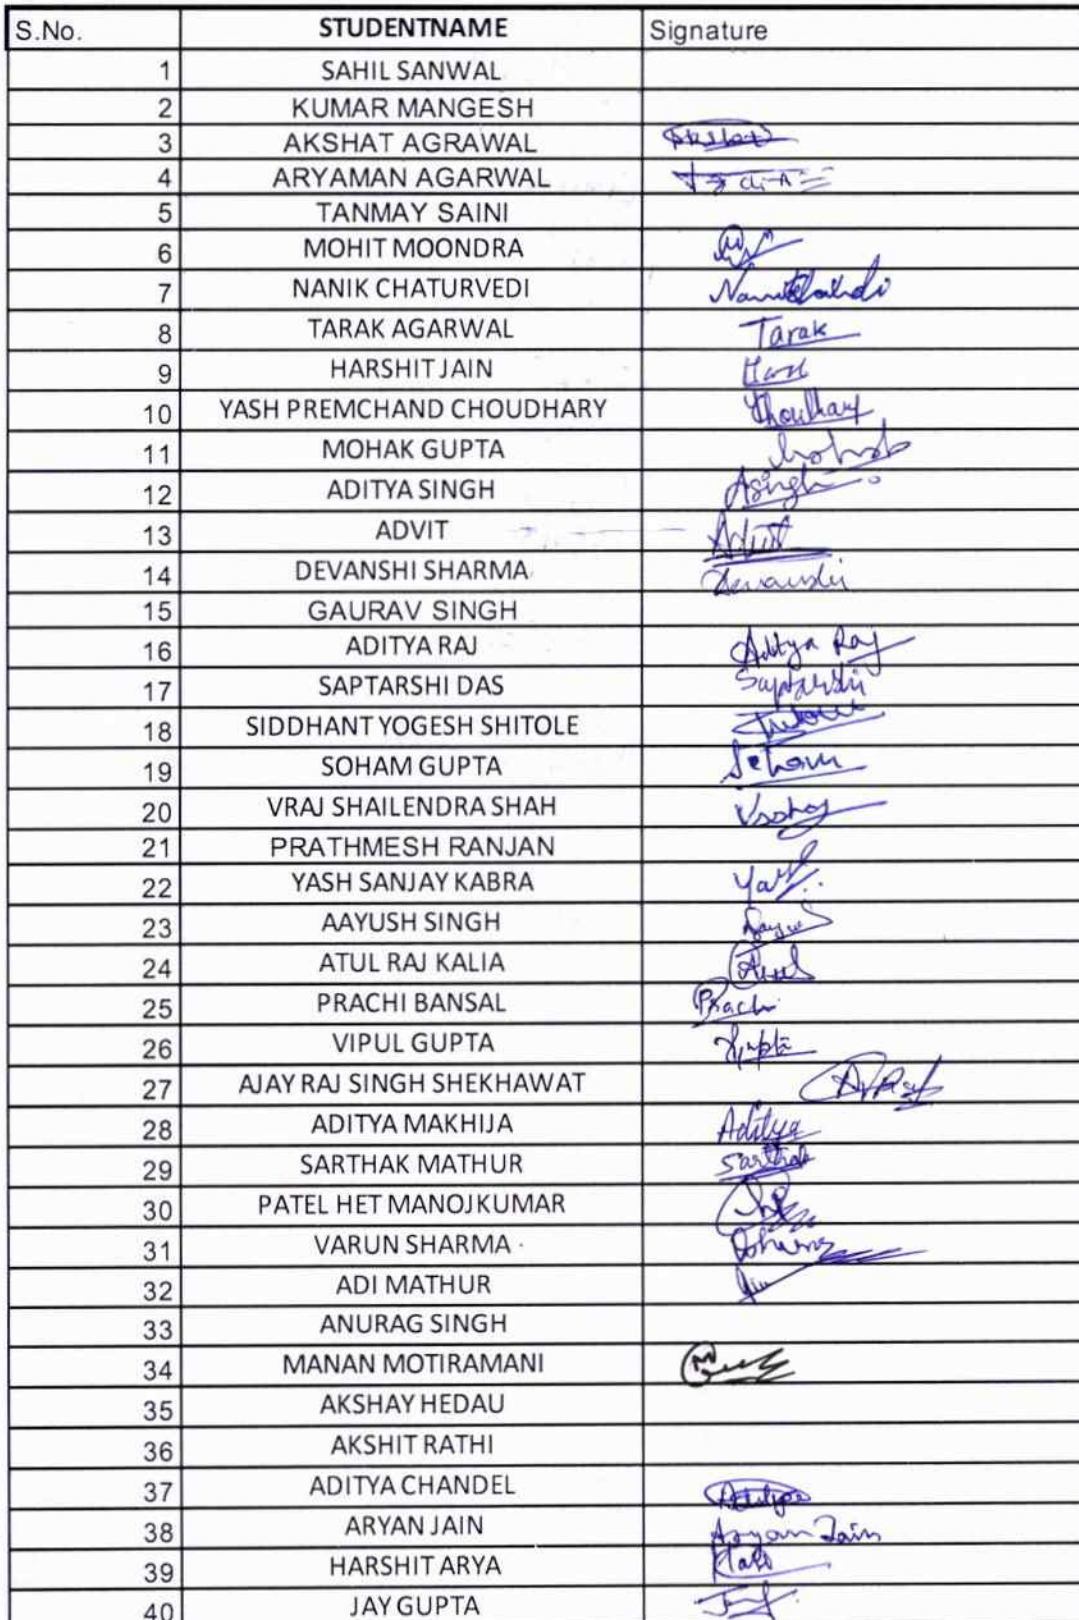 S.No. STUDENTNAME Signature
1 SAHIL SANWAL
2 KUMAR MANGESH
3 AKSHAT AGRAWAL
4 ARYAMAN AGARWAL
5 TANMAY SAINI
6 MOHIT MOONDRA
7 NANIK CHATURVEDI
8 TARAK AGARWAL Tarak
9 HARSHIT JAIN
10 YASH PREMCHAND CHOUDHARY
11 MOHAK GUPTA
12 ADITYA SINGH Asingh
13 ADVIT Advit
14 DEVANSHI SHARMA Devanshi
15 GAURAV SINGH
16 ADITYA RAJ Aditya Raj
17 SAPTARSHI DAS Saptarshi
18 SIDDHANT YOGESH SHITOLE
19 SOHAM GUPTA Soham
20 VRAJ SHAILENDRA SHAH
21 PRATHMESH RANJAN
22 YASH SANJAY KABRA
23 AAYUSH SINGH
24 ATUL RAJ KALIA Atul
25 PRACHI BANSAL Prachi
26 VIPUL GUPTA
27 AJAY RAJ SINGH SHEKHAWAT
28 ADITYA MAKHIJA Aditya
29 SARTHAK MATHUR Sarthak
30 PATEL HET MANOJKUMAR
31 VARUN SHARMA
32 ADI MATHUR
33 ANURAG SINGH
34 MANAN MOTIRAMANI
35 AKSHAY HEDAU
36 AKSHIT RATHI
37 ADITYA CHANDEL Aditya
38 ARYAN JAIN Aryan Jain
39 HARSHIT ARYA
40 JAY GUPTA